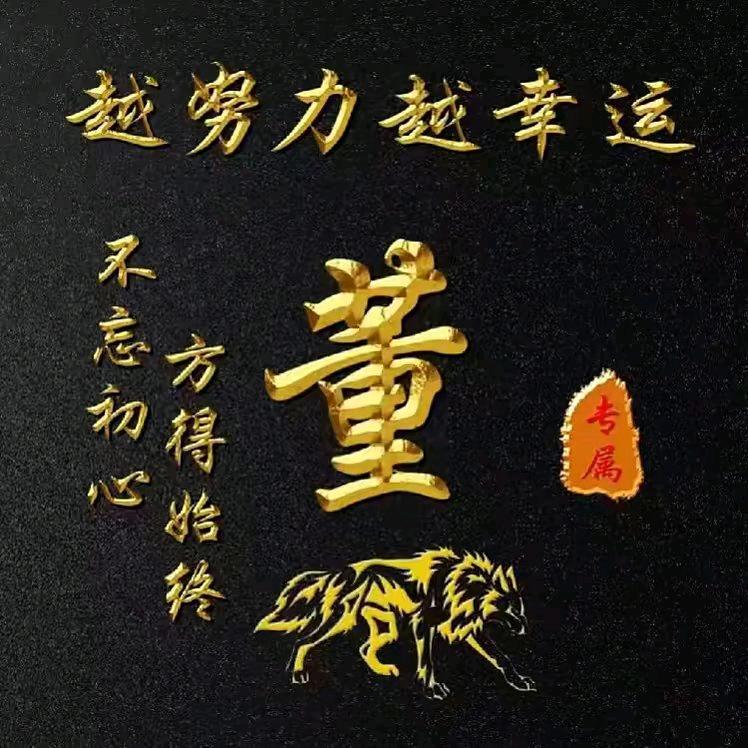 越努力越幸运
不忘初心
方得始终
董
专属